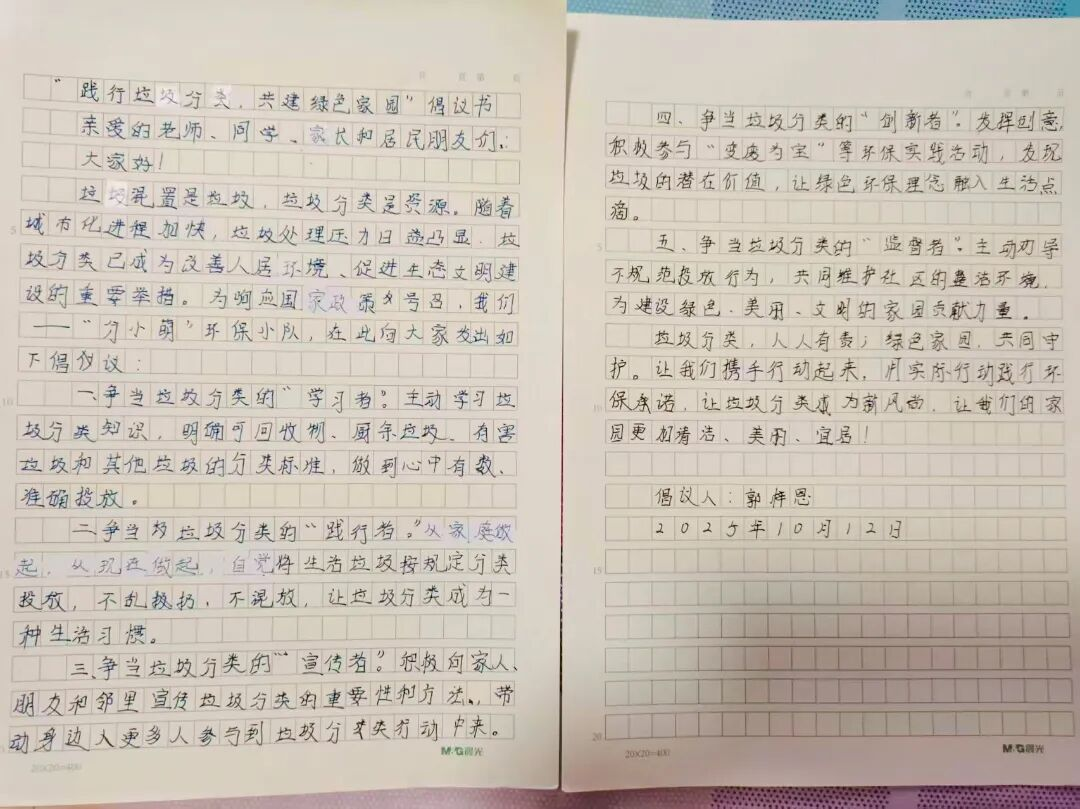 “践行垃圾分类，共建绿色家园”倡议书
亲爱的老师、同学、家长和居民朋友们：
大家好！
垃圾混置是垃圾，垃圾分类是资源。随着
城市化进程加快，垃圾处理压力日益凸显，垃
圾分类已成为改善人居环境、促进生态文明建
设的重要举措。为响应国家政策号召，我们
——“分小萌”环保小队，在此向大家发出如
下倡议：
一、争当垃圾分类的“学习者”。主动学习垃
圾分类知识，明确可回收物、厨余垃圾、有害
垃圾和其他垃圾的分类标准，做到心中有数、
准确投放。
二、争当垃圾分类的“践行者”。从家庭做
起，从现在做起，自觉将生活垃圾按规定分类
投放，不乱扔、不混放，让垃圾分类成为一
种生活习惯。
三、争当垃圾分类的“宣传者”。积极向家人、
朋友和邻里宣传垃圾分类的重要性和方法，带
动身边人更多人参与到垃圾分类行动中来。
20×20=400
M&G晨光
四、争当垃圾分类的“创新者”。发挥创意，
积极参与“变废为宝”等环保实践活动，发现
垃圾的潜在价值，让绿色环保理念融入生活点
滴。
五、争当垃圾分类的“监督者”。主动劝导
不规范投放行为，共同维护社区的整洁环境，
为建设绿色、美丽、文明的家园贡献力量。
垃圾分类，人人有责；绿色家园，共同守
护。让我们携手行动起来，用实际行动践行环
保承诺，让垃圾分类成为新风尚，让我们的家
园更加清洁、美丽、宜居！
倡议人：郭梓恩
2025年10月12日
20×20=400
M&G晨光